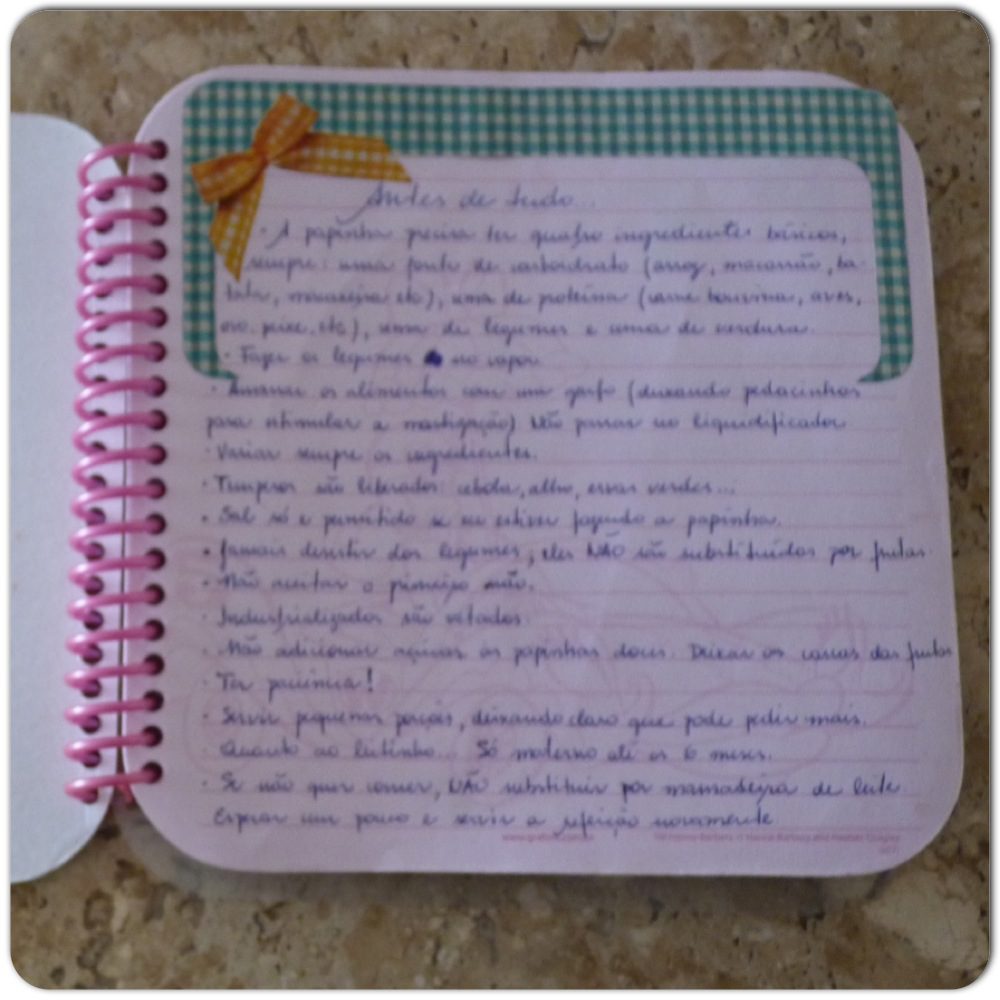 Antes de tudo...
· A papinha precisa ter quatro ingredientes básicos,
sempre: uma fonte de carboidrato (arroz, macarrão, ba-
tata, macaxeira etc), uma de proteína (carne bovina, aves,
ovo, peixe, etc), uma de legumes e uma de verdura.
· Fazer os legumes no vapor
· Amassar os alimentos com um garfo (deixando pedacinhos
para estimular a mastigação) Não passar no liquidificador
· Variar sempre os ingredientes.
· Temperos são liberados: cebola, alho, ervas verdes...
· Sal só é permitido se eu estiver fazendo a papinha.
· Jamais desistir dos legumes, eles NÃO são substituídos por frutas.
· Não aceitar o primeiro não.
· Industrializados são vetados.
· Não adicionar açúcar às papinhas doces. Deixar as cascas das frutas
· Ter paciência!
· Servir pequenas porções, deixando claro que pode pedir mais.
· Quanto ao leitinho... Só materno até os 6 meses.
· Se não quer comer, NÃO substituir por mamadeira de leite
Esperar um pouco e servir a refeição novamente